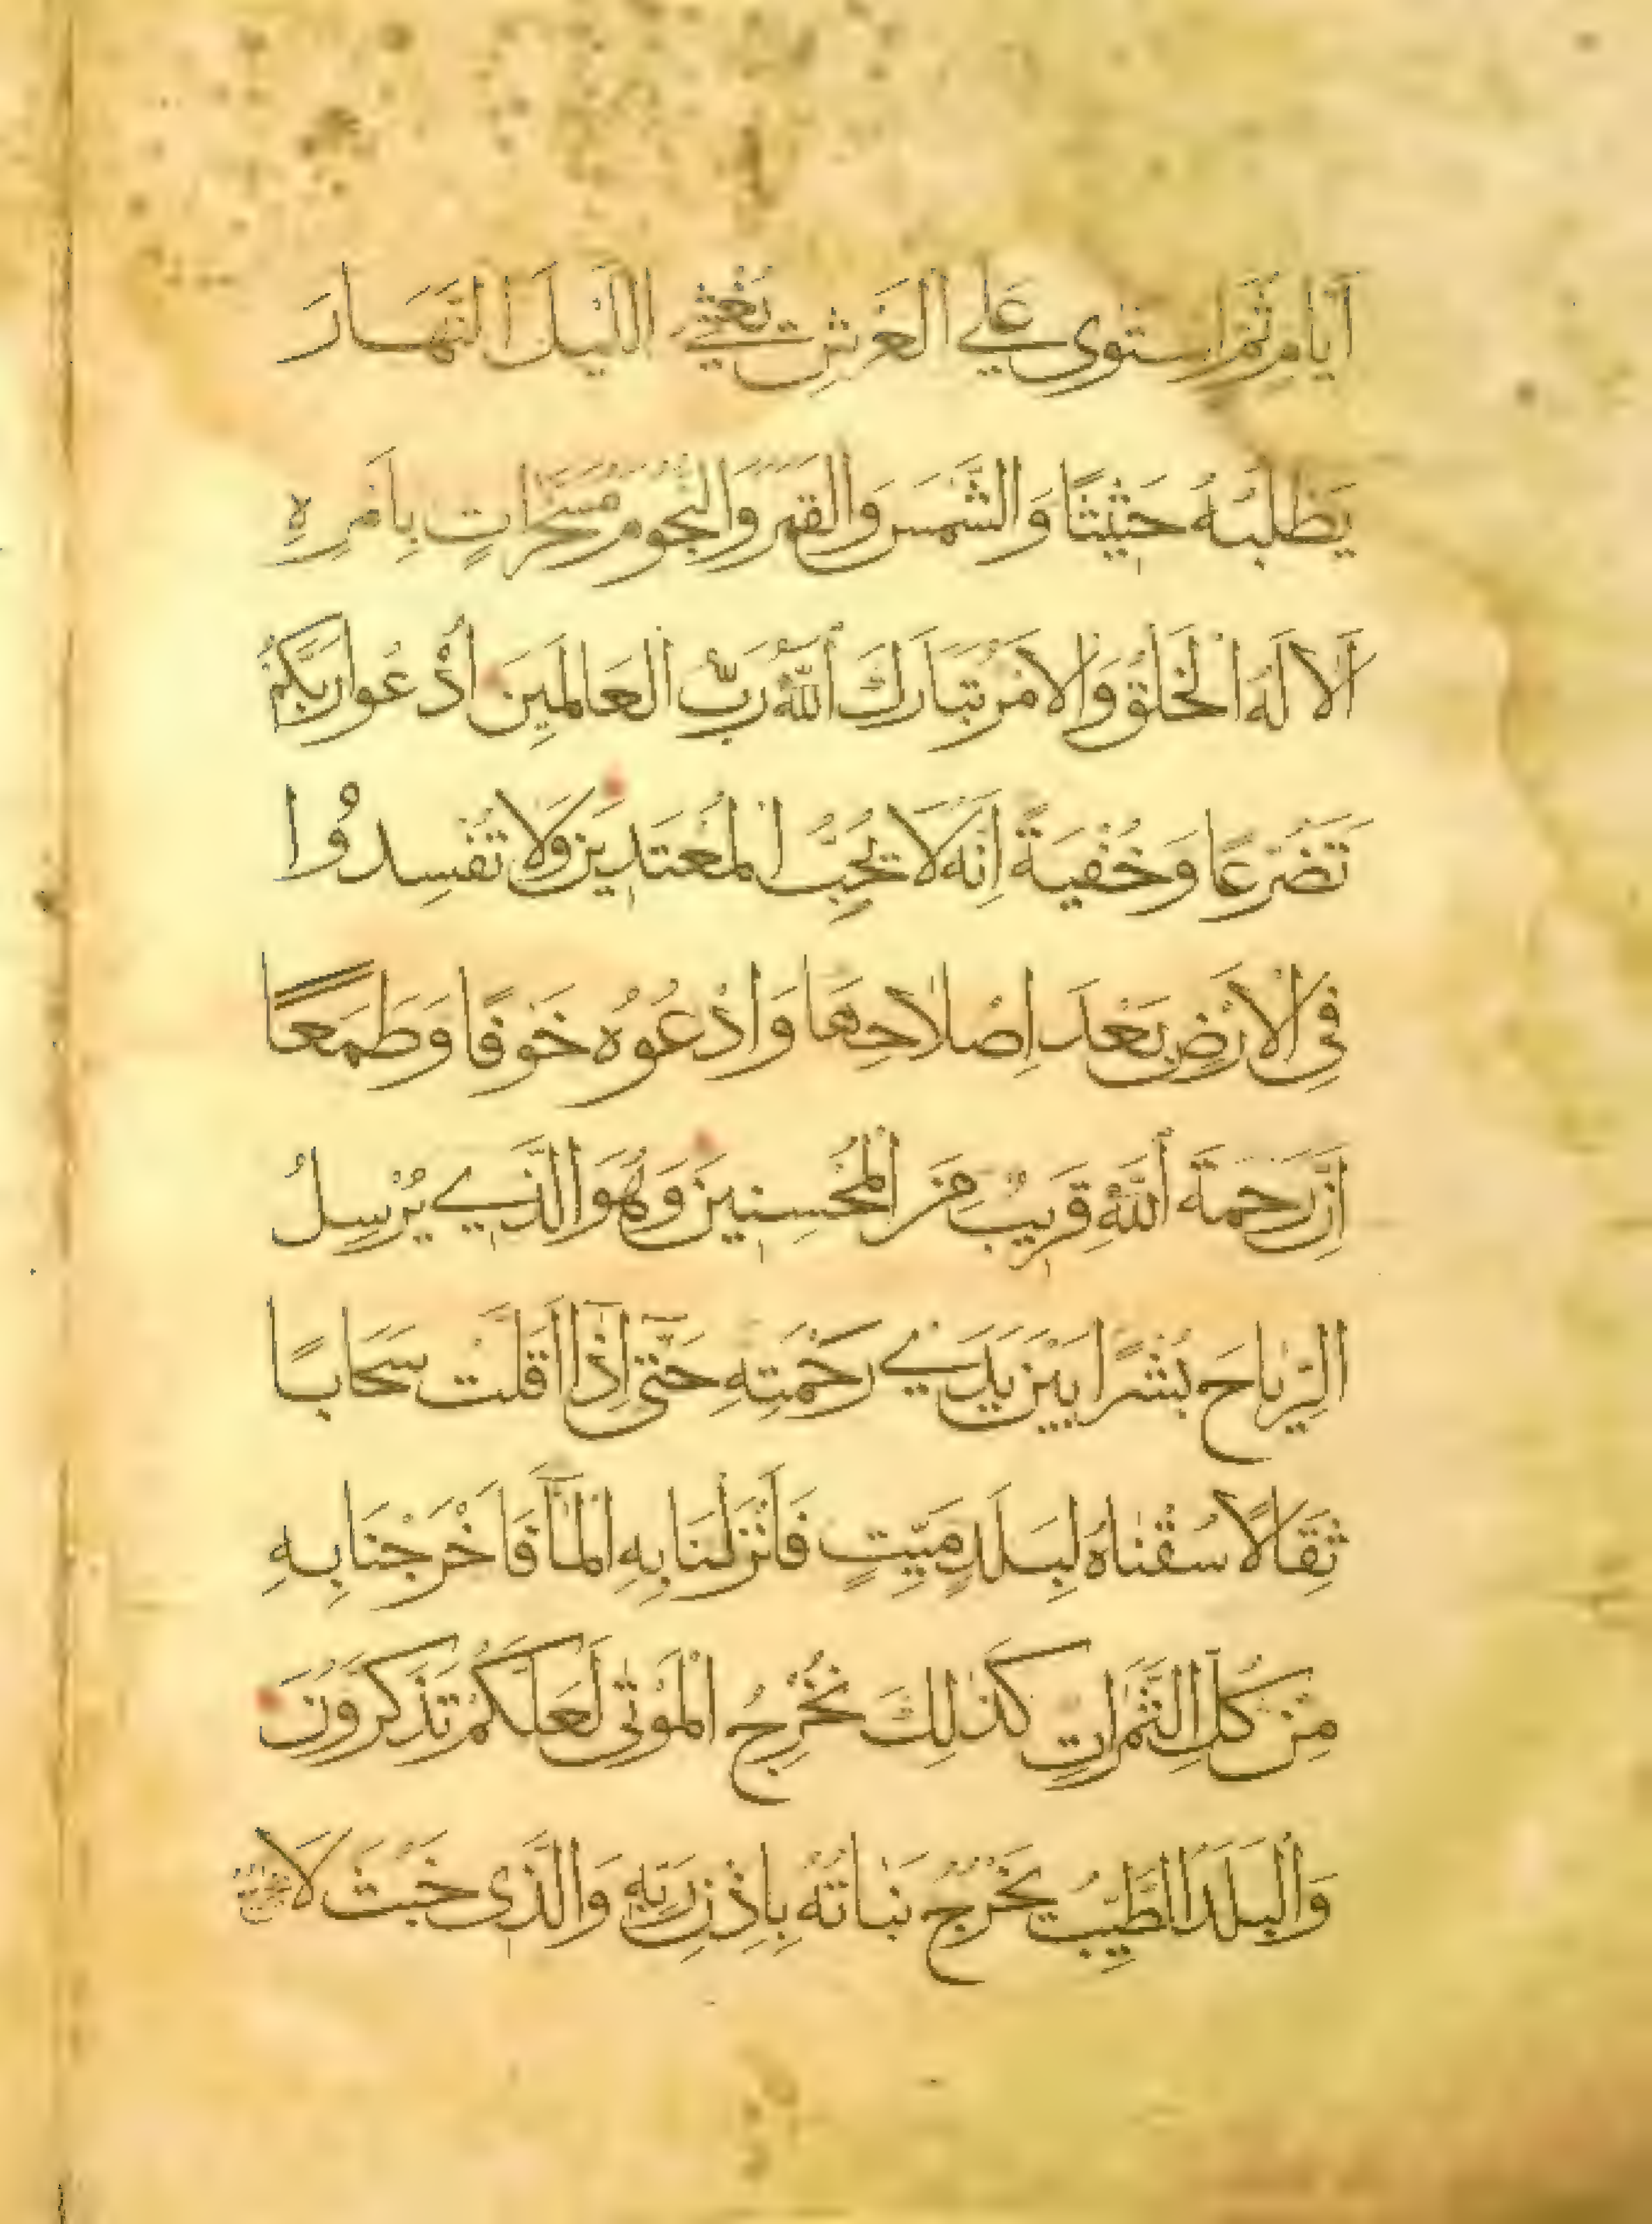 أَيَّامٍ ثُمَّ اسْتَوَى عَلَى الْعَرْشِ يُغْشِي اللَّيْلَ النَّهَارَ
يَطْلُبُهُ حَثِيثًا وَالشَّمْسَ وَالْقَمَرَ وَالنُّجُومَ مُسَخَّرَاتٍ بِأَمْرِهِ
أَلَا لَهُ الْخَلْقُ وَالْأَمْرُ تَبَارَكَ اللَّهُ رَبُّ الْعَالَمِينَ ادْعُوا رَبَّكُمْ
تَضَرُّعًا وَخُفْيَةً إِنَّهُ لَا يُحِبُّ الْمُعْتَدِينَ وَلَا تُفْسِدُوا
فِي الْأَرْضِ بَعْدَ إِصْلَاحِهَا وَادْعُوهُ خَوْفًا وَطَمَعًا
إِنَّ رَحْمَةَ اللَّهِ قَرِيبٌ مِنَ الْمُحْسِنِينَ وَهُوَ الَّذِي يُرْسِلُ
الرِّيَاحَ بُشْرًا بَيْنَ يَدَيْ رَحْمَتِهِ حَتَّى إِذَا أَقَلَّتْ سَحَابًا
ثِقَالًا سُقْنَاهُ لِبَلَدٍ مَيِّتٍ فَأَنْزَلْنَا بِهِ الْمَآ فَأَخْرَجْنَا بِهِ
مِنْ كُلِّ الثَّمَرَاتِ كَذَلِكَ نُخْرِجُ الْمَوْتَى لَعَلَّكُمْ تَذَكَّرُونَ
وَالْبَلَدُ الطَّيِّبُ يَخْرُجُ نَبَاتُهُ بِإِذْنِ رَبِّهِ وَالَّذِي خَبُثَ لَا